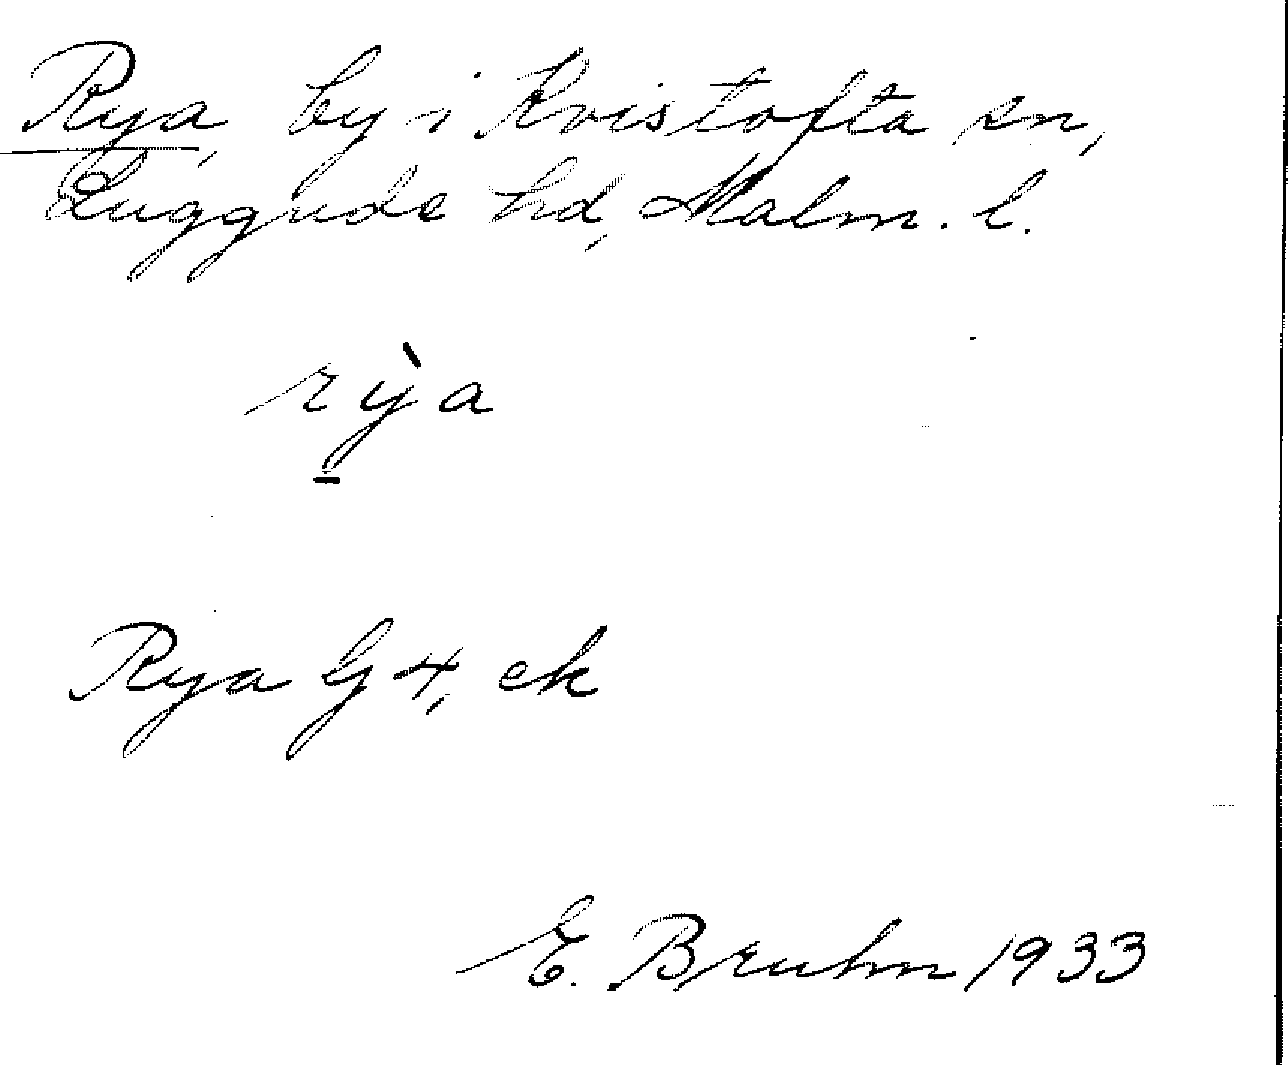 Rya, by i Kvistofta sn,
Luggude hd, Malm. l.
rỳ̱a
Rya G4, ek
E. Bruhn 1933